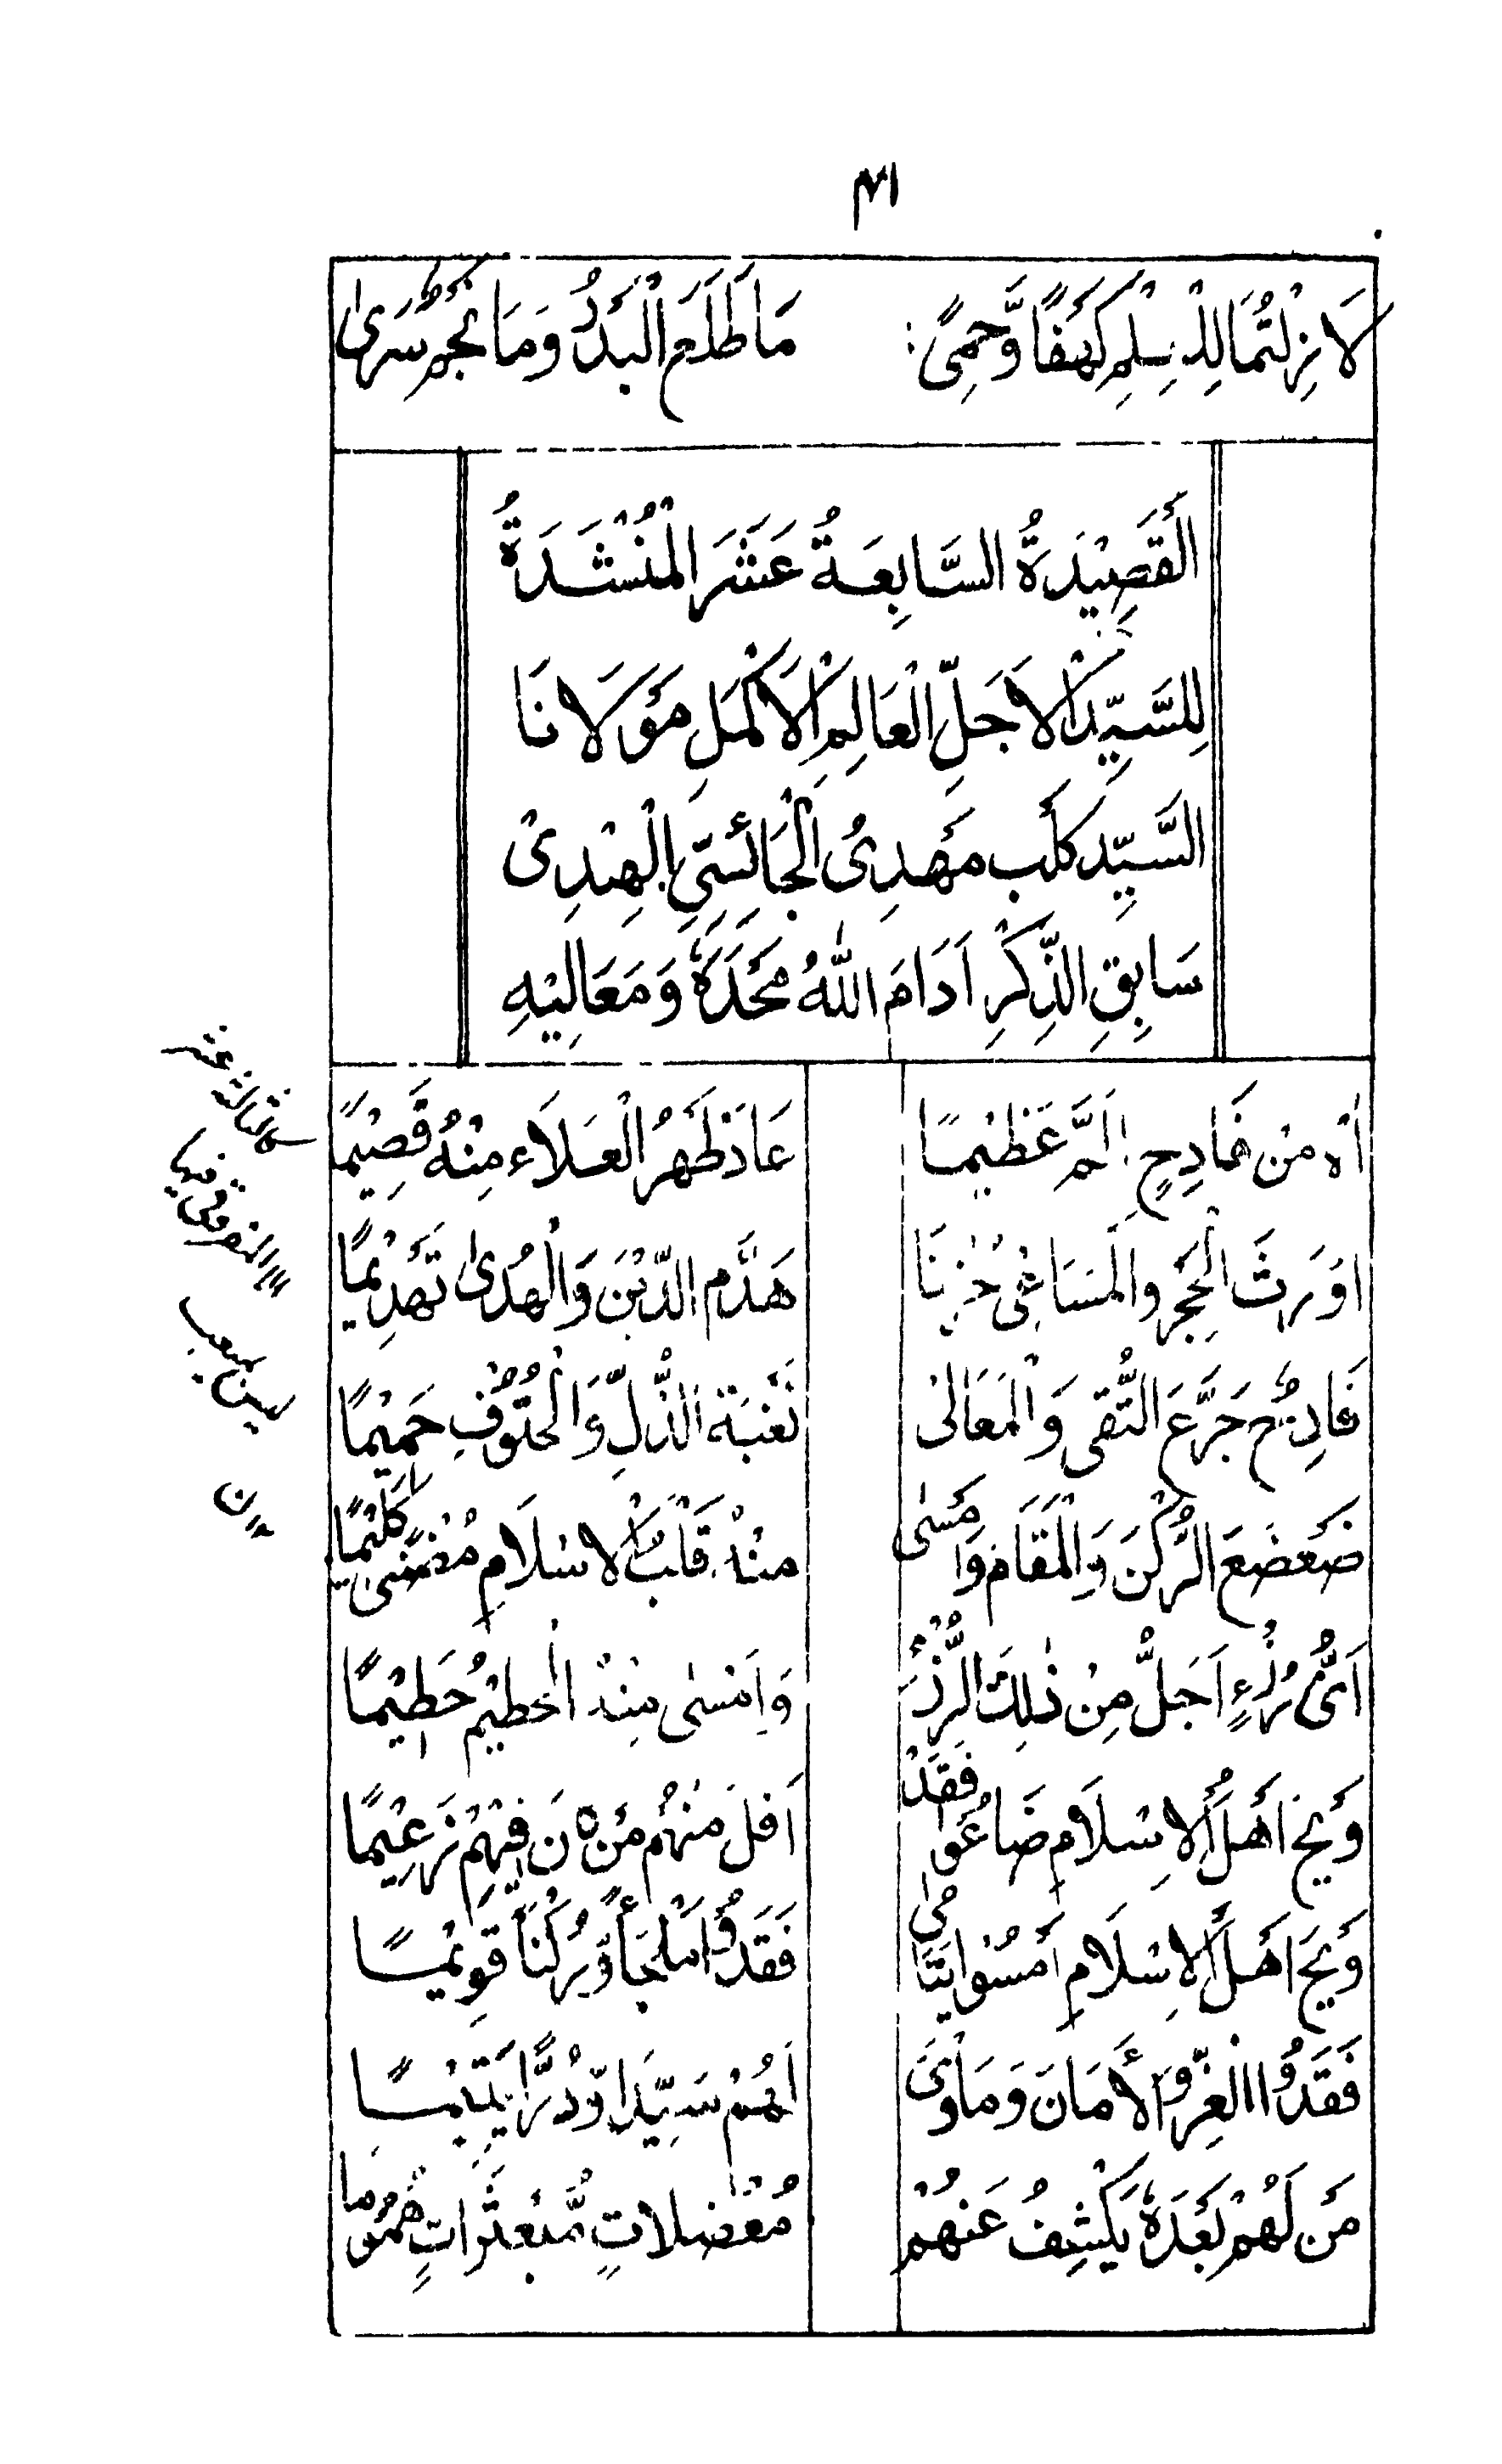 ٣١
لَا زِلْتُمَا لِلدِّيْنِ كَهْفًا وَّحِمًى : مَا طَلَعَ الْبَدْرُ وَمَا نَجْمٌ سَرىٰ
اَلْقَصِيْدَةُ السَّابِعَةُ عَشَرَ الْمُنْشَدَةُ
لِلسَّيِّدِ الْاَجَلِّ الْعَالِمِ الْاَكْمَلِ مَوْلَانَا
السَّيِّد كَلْب مَهْدِىْ الْجَائِسِيّ الْهِنْدِىْ
سَابِقِ الذِّكْرِ اَدَامَ اللّٰهُ مَجْدَهٗ وَمَعَالِيْهِ
اٰهِ مِنْ فَادِحٍ اَلَمَّ عَظِيْمًا عَادَ ظَهْرُ الْعَلَاءِ مِنْهُ قَصِيْمًا
اَوْرَثَ الْحِجْرَ وَالْمَسَاعِىْ حُزْنًا هَدَّمَ الدِّيْنَ وَالْهُدىٰ تَهْدِيْمًا
فَادِحٌ جَرَّعَ التُّقى وَالْمَعَالِىْ نَغْبَةَ الذُّلِّ وَالْحُتُوْفِ حَمِيْمًا
ضَعْضَعَ الرُّكْنَ وَالْمَقَامَ وَاَمْسٰى مِنْهُ قَلْبُ الْاِسْلَامِ مُضْمًى كَلِيْمًا
اَىُّ رُزْءٍ اَجَلُّ مِنْ ذٰلِكَ الرُّزْءِ وَاَمْسٰى مِنْهُ الْحَطِيْمُ حَطِيْمًا
وَيْحَ اَهْلِ الْاِسْلَامِ ضَاعُوْا فَقَدْ اَفَلَ مِنْهُمْ مَنْ كَانَ فِيْهِمْ زَعِيْمًا
وَيْحَ اَهْلِ الْاِسْلَامِ اَمْسَوْا يَتَامٰى فَقَدُوْا مَلْجَأً وَّرُكْنًا قَوِيْمًا
فَقَدُوا الْعِزَّ وَالْأَمَانَ وَمَأْوىٰ لَهُمْ سَيِّدًا وَّدُرًّا يَتِيْمًا
مَنْ لَهُمْ بَعْدَهٗ يَكْشِفُ عَنْهُمْ مُعْضَلَاتٍ مُّبَعْثَرَاتٍ هُمُوْمًا